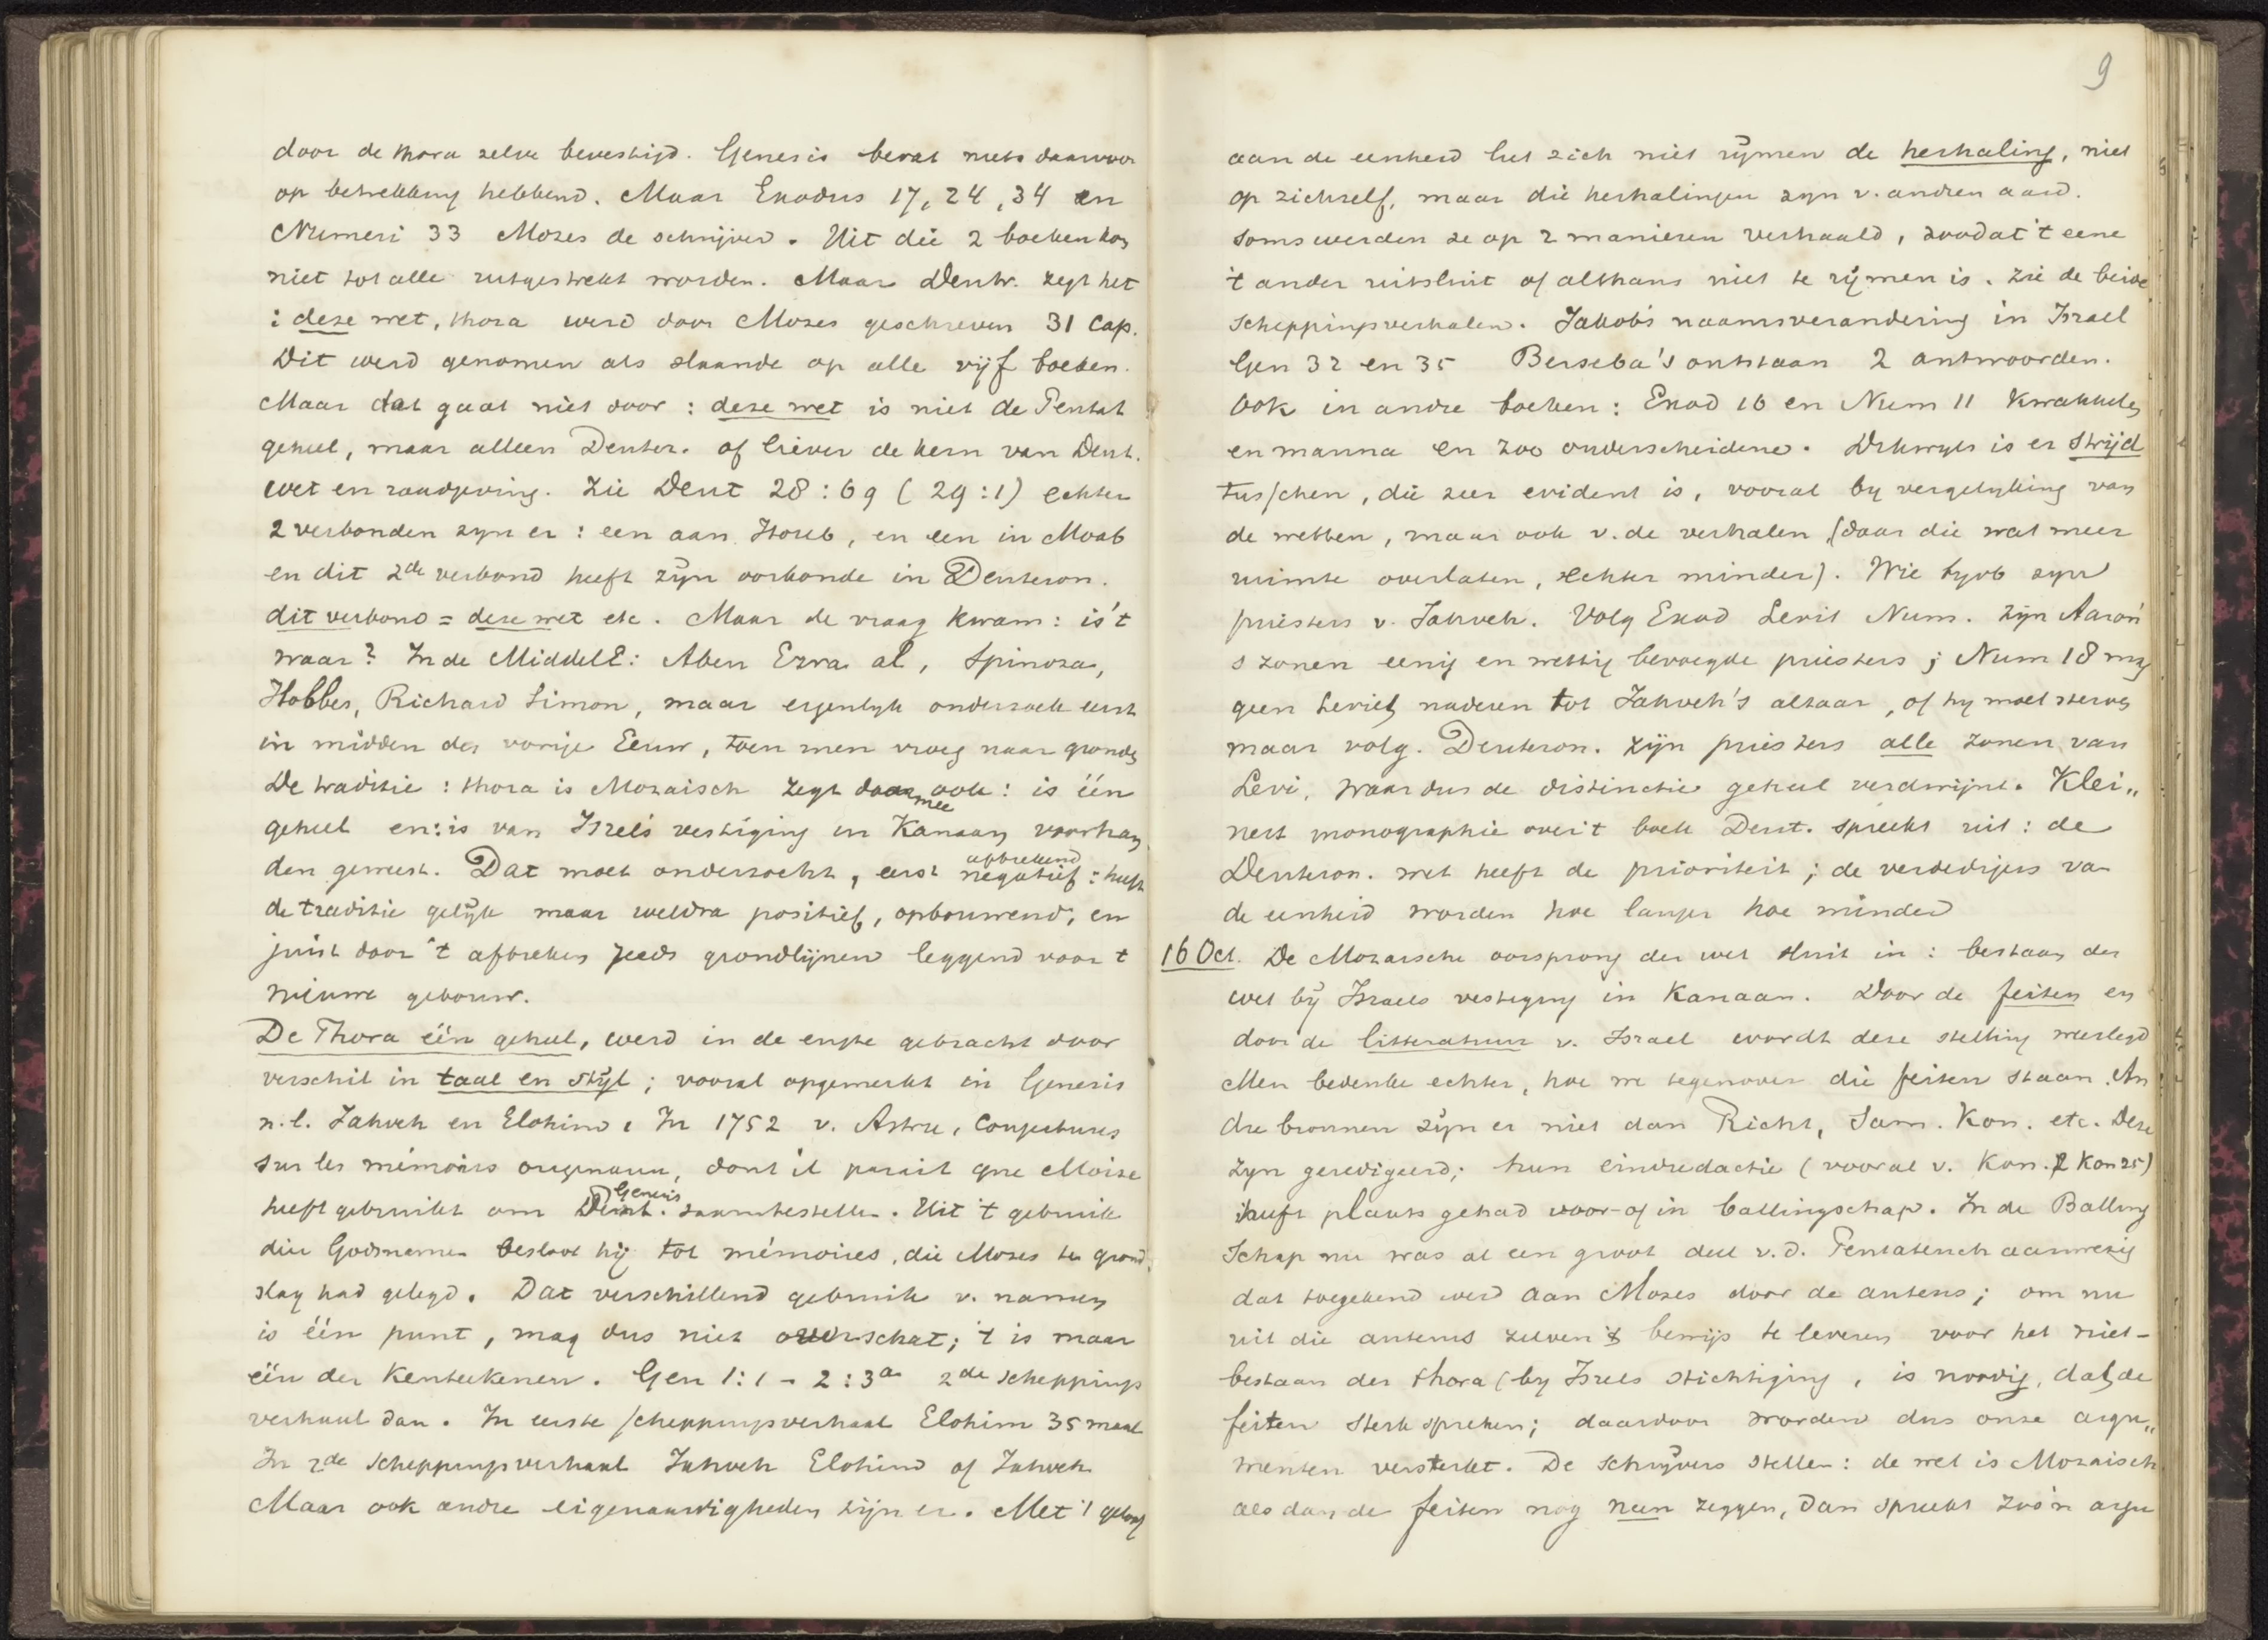 door de thora zelve bevestigd. Genesis bevat niets daarvoor
op betrekking hebbend. Maar Exodus 17, 24, 34 en
Numeri 33 Mozes de schrijver. Uit die 2 boeken kon
niet tot alle uitgestrekt worden. Maar Deutr. zegt het
: deze wet, thora werd door Mozes geschreven 31 Cap.
Dit werd genomen als slaande op alle vijf boeken.
Maar dat gaat niet door : deze wet is niet de Pentat
geheel, maar alleen Deuter. of liever de kern van Deut.
wet en raadgeving. Zie Deut 28 : 69 (29 : 1) echter
2 verbonden zyn er : een aan Horeb, en een in Moab
en dit 2de verbond heeft zijn oorkonde in Deuteron.
dit verbond = deze wet etc. Maar de vraag kwam : is 't
waar? In de MiddelE : Aben Ezra al, Spinoza,
Hobbes, Richard Simon, maar eigenlyk onderzoek eerst
in midden der vorige Eeuw, toen men vroeg naar gronden
De traditie : thora is Mozaisch zegt daarmee ook : is één
geheel en : is van Israels vestiging in Kanaan voorhan
den geweest. Dat moet onderzocht, eerst afbrekend negatief : heeft
de traditie gelijk maar weldra positief, opbouwend, en
juist door 't afbreken reeds grondlijnen leggend voor t
nieuwe gebouw.
De Thora één geheel, werd in de engte gebracht door
verschil in taal en stijl ; vooral opgemerkt in Genesis
n.l. Jahveh en Elohim. In 1752 v. Astruc, Conjectures
sur les mémoires originaux, dont il parait que Moise
heeft gebruikt om Genesis saamtestellen. Uit 't gebruik
dier Godsnamen besloot hij tot mémoires, die Mozes ten grond
slag had gelegd. Dat verschillend gebruik v. namen
is één punt, mag dus niet overschat ; 't is maar
één der Kenteekenen. Gen 1 : 1 - 2 : 3a 2de scheppings
verhaal dan. In eerste scheppingsverhaal Elohim 35 maal
In 2de scheppingsverhaal Jahveh Elohim of Jahveh
Maar ook andre eigenaardigheden zijn er. Met 't geloof
9
aan de eenheid liet zich niet rijmen de herhaling, niet
op zichzelf, maar die herhalingen zyn v. andren aard.
Soms werden ze op 2 manieren verhaald, zoodat 't eene
't ander uitsluit of althans niet te rijmen is. Zie de beide
scheppingsverhalen. Jakobs naamsverandering in Israel
Gen 32 en 35 Berseba's ontstaan 2 antwoorden.
Ook in andre boeken : Exod 16 en Num 11 Kwakkels
en manna en zoo onderscheidene. Dikwyls is er strijd
tusschen, die zeer evident is, vooral by vergelyking van
de wetten, maar ook v. de verhalen (daar die wat meer
ruimte overlaten, echter minder). Wie byvb zyn
priesters v. Jahveh. Volg Exod Levit Num. zijn Aaron'
s zonen eenig en wettig bevoegde priesters ; Num 18 mag
geen Leviet naderen tot Jahveh's altaar, of hy moet sterven
maar volg. Deuteron. zijn priesters alle zonen van
Levi, waardus de distinctie geheel verdwijnt. Klei„
nert monographie over 't boek Deut. spreekt uit : de
Deuteron. wet heeft de prioriteit ; de verdedigers va
de eenheid worden hoe langer hoe minder
16 Oct. De Mozaische oorsprong der wet sluit in : bestaan der
wet bij Israels vestiging in Kanaan. Door de feiten en
door de litteratuur v. Israel wordt deze stelling weerlegd
Men bedenke echter, hoe we tegenover die feiten staan. An
dre bronnen zijn er niet dan Richt, Sam. Kon. etc. Deze
zyn geredigeerd ; hun eindredactie (vooral v. Kon. 2 Kon 25)
heeft plaats gehad voor- of in ballingschap. In de Balling
schap nu was al een groot deel v.d. Pentateuch aanwezig
dat toegekend werd aan Mozes door de auteurs ; om nu
uit die auteurs zelven 't bewijs te leveren voor het niet-
bestaan der thora (by Israels stichtiging, is noodig, dat de
feiten sterk spreken ; daardoor worden dus onze argu„
menten versterkt. De schrijvers stellen : de wet is Mozaisch
als dan de feiten nog neen zeggen, dan spreekt zoo'n argu